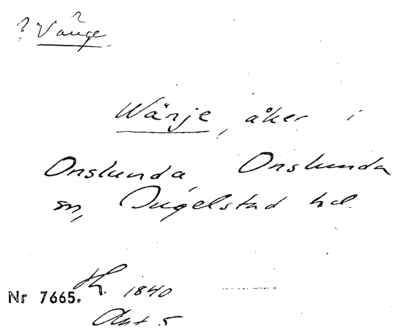 ? Vänge ?
Wänje, åker i
Onslunda Onslunda
sn, Ingelstad hd.
Nr 7665. H. 1840
Akt 5